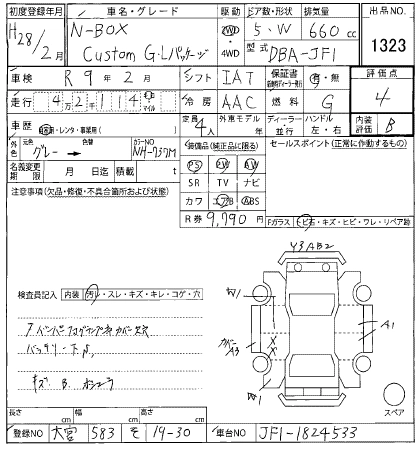 初度登録年月 車名・グレード 駆動 ドア数・形状 排気量 出品NO.
H28/2月 N-BOX 2WD・4WD 5・W 660cc
Custom G・Lパッケージ 型式 DBA-JF1 1323
車検 R 9年 2月 シフト IAT 保証書 有・無 評価点
走行 4万2千114 キロ マイル 冷房 AAC 燃料 G 4
車歴 自家用・レンタ・事業用( ) 定員 4人 外車モデル 年 ディーラー・並行 ハンドル 左・右 内装評価 B
色 元色 グレー → 色替 カラーNO NH-737M 装備品(純正品に限る) セールスポイント(正常に動作するもの)
名義変更期限 月 日迄 積載 t PS PW AW
注意事項(欠品・修復・不具合箇所および状態) SR TV ナビ
カワ エアB ABS
R券 9,790円 Fガラス(トビ石・キズ・ヒビ・ワレ・リペア跡)
Y3AB2
検査員記入 内装(汚レ・スレ・キズ・キレ・コゲ・穴)
W1
A1
カバーA3
X
X
バッテリー下
キズ B.
スペア
長さ cm 幅 cm 高さ cm
登録NO 大宮 583 そ 19-30 車台NO JF1-1824533